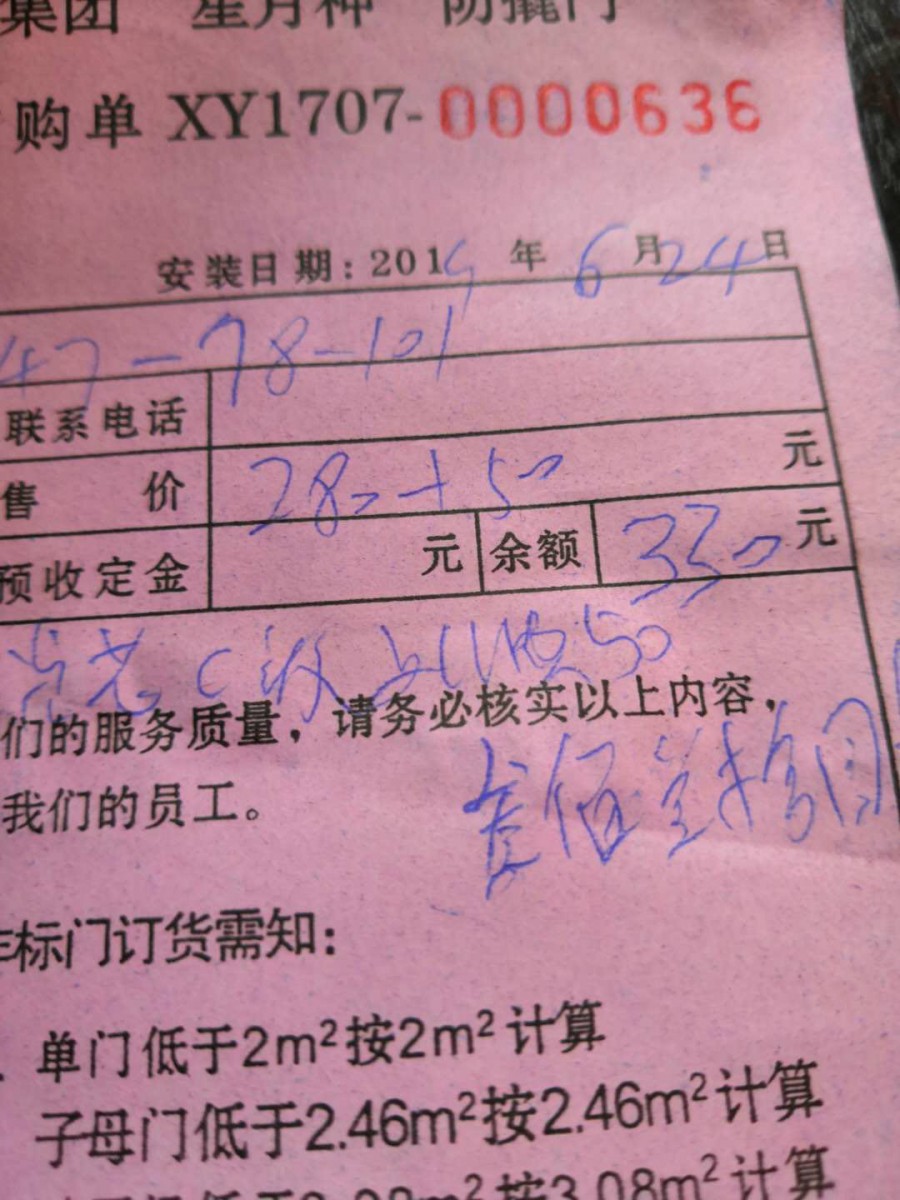 集团 星月神 防撬门
购单 XY1707-0000636
安装日期:2019年6月24日
47-78-101
联系电话
售价 280+50 元
预收定金 元 余额 330元
50
们的服务质量,请务必核实以上内容,
叁佰叁拾圆
我们的员工。
标门订货需知:
单门低于2m²按2m²计算
子母门低于2.46m²按2.46m²计算
3.08m²计算